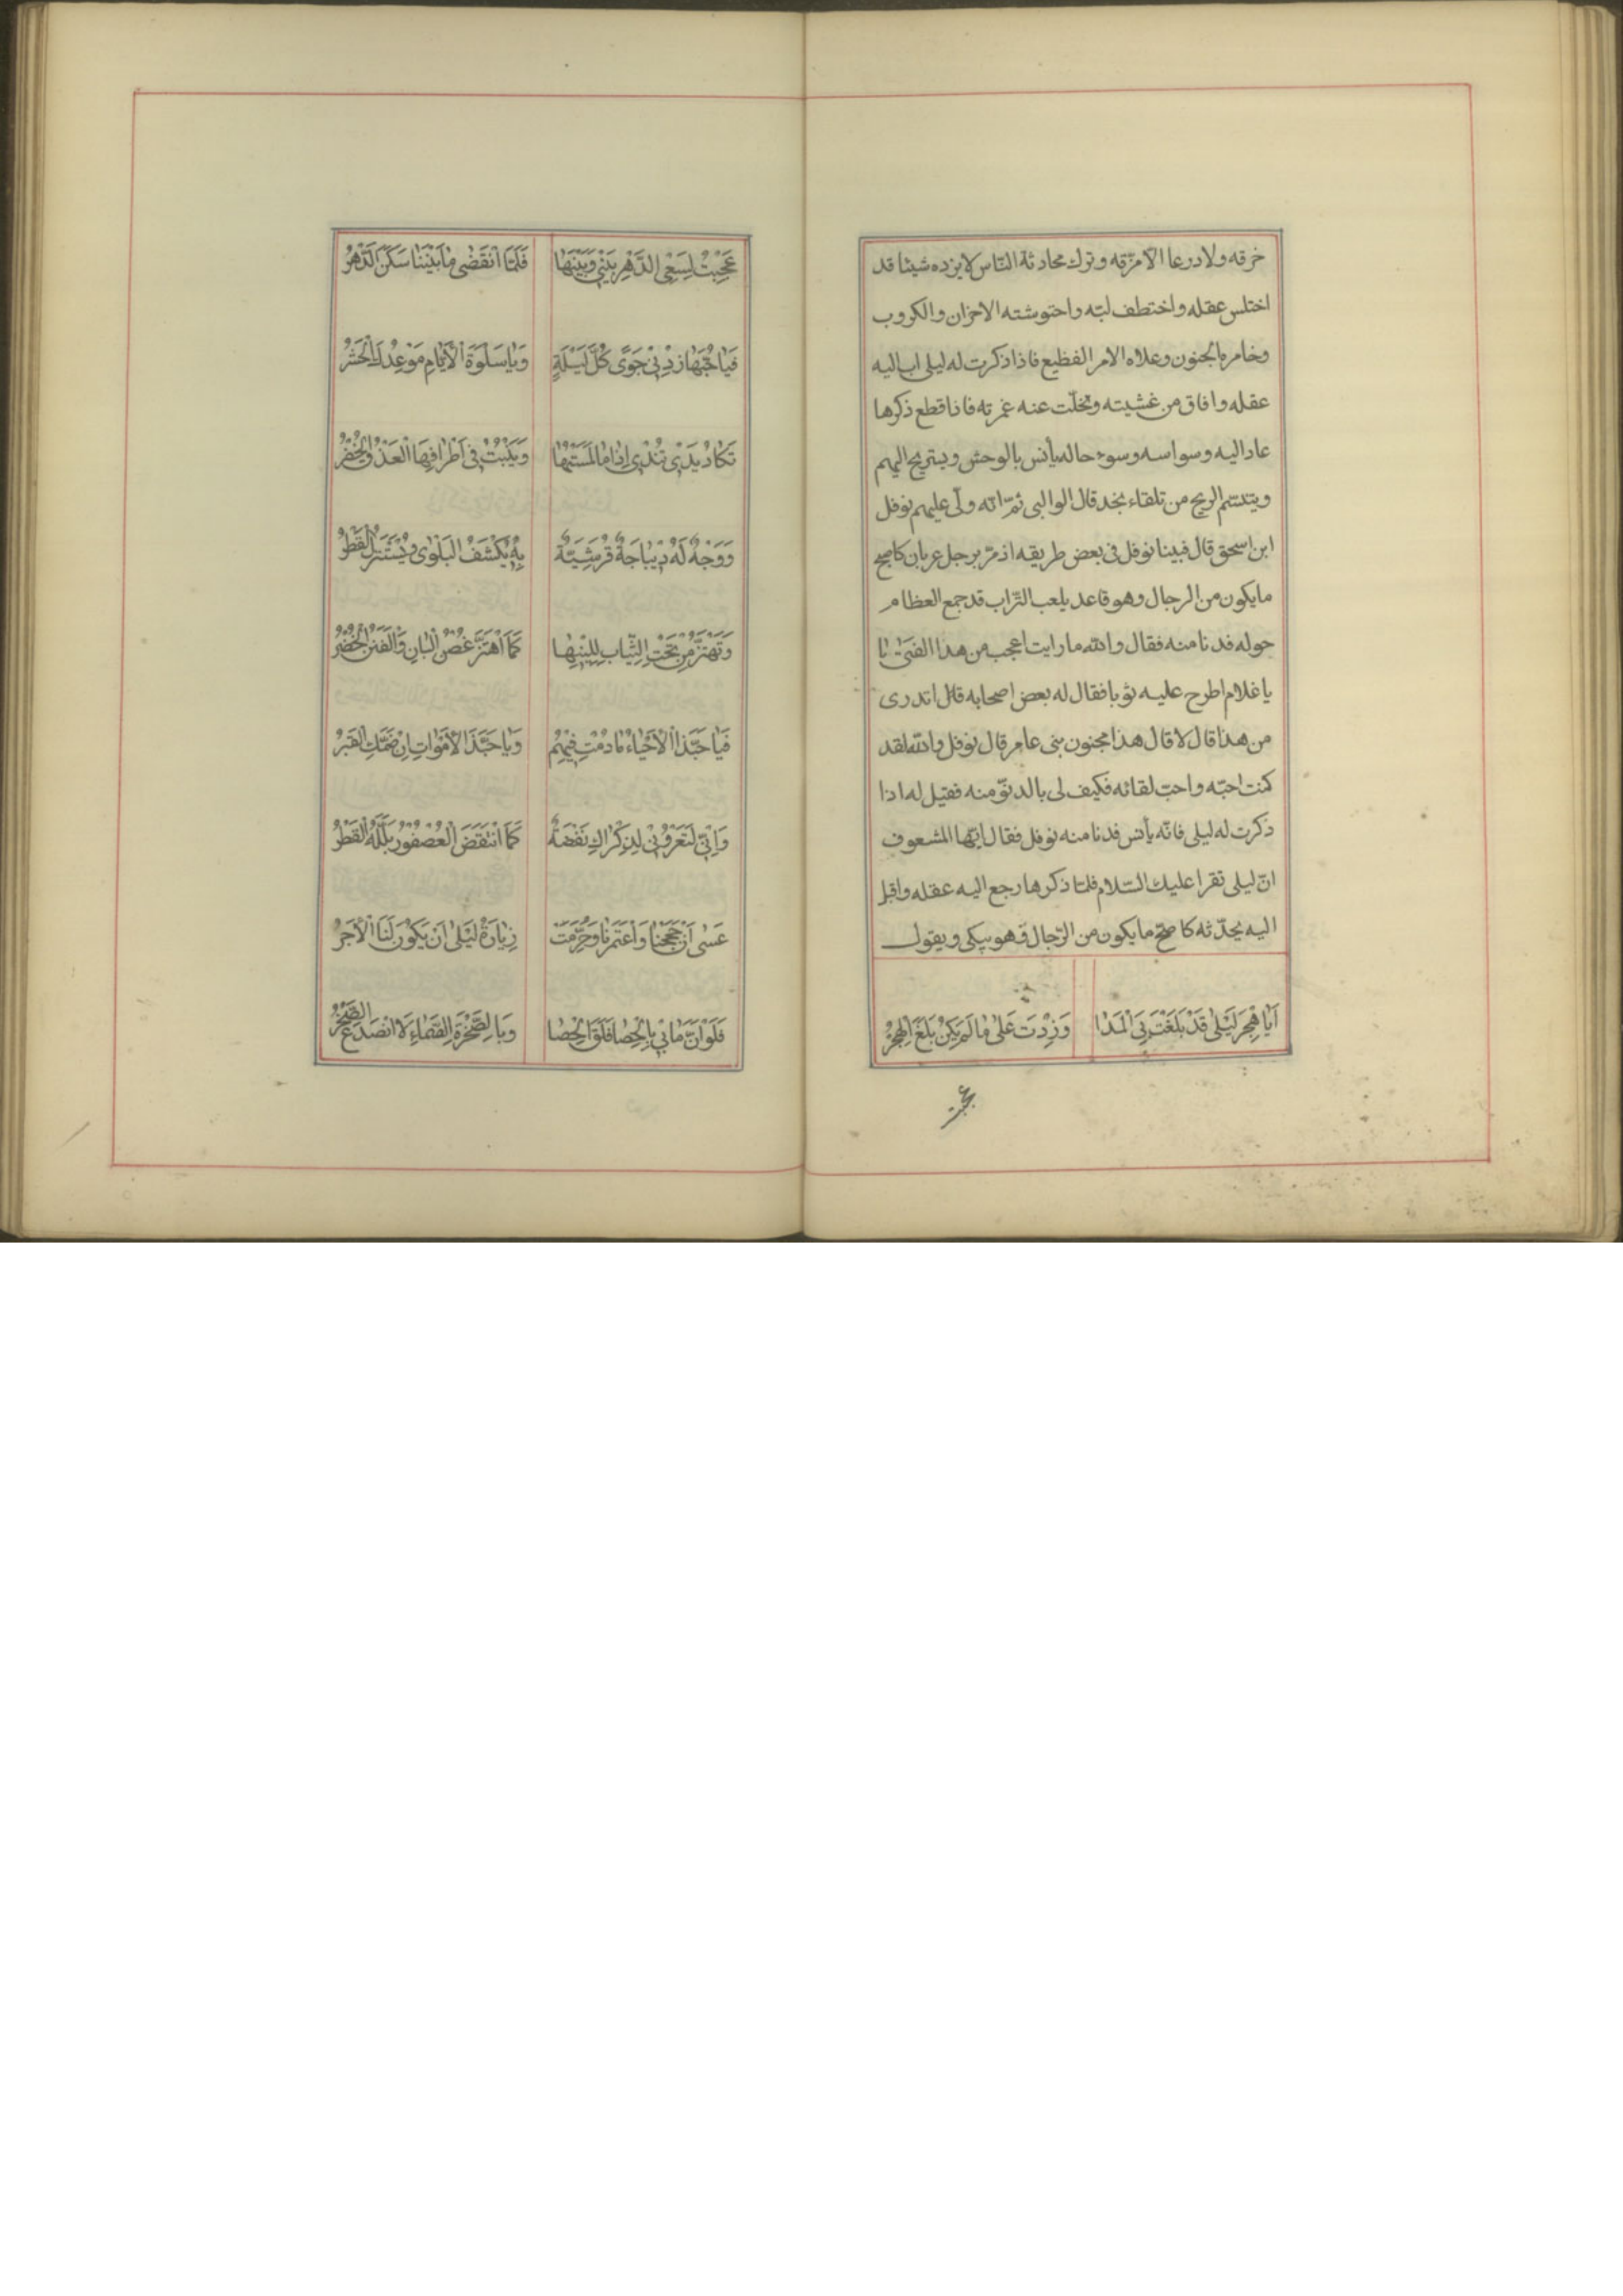 خرقه ولا درعا الّا مزّقه وترك محادثة النّاس لا يزده شيئا قد
اختلس عقله واختطف لبّه واحتوشته الاحزان والكروب
وخامره الجنون وعلاه الامر الفظيع فاذا ذكرت له ليلى اب اليه
عقله وافاق من غشيته وتخلّت عنه غمرته فاذا قطع ذكرها
عاد اليه وسواسه وسوء حاله يأنس بالوحش ويستريح اليهم
ويتنسّم الريح من تلقاء نجد قال الوالبى ثمّ انّه ولّى عليهم نوفل
ابن اسحق قال فبينا نوفل فى بعض طريقه اذ مرّ برجل عريان كاصح
مايكون من الرجال وهو قاعد يلعب التّراب قد جمع العظام
حوله فدنا منه فقال والله مارايت اعجب من هذا الفتى يا
يا غلام اطرح عليه ثوبا فقال له بعض اصحابه قال اتدرى
من هذا قال لا قال هذا مجنون بنى عامر قال نوفل والله لقد
كنت احبّه واحبّ لقائه فكيف لى بالدنوّ منه فقيل له اذا
ذكرت له ليلى فانّه يأنس فدنا منه نوفل فقال ايّها المشعوف
انّ ليلى تقرا عليك السّلام فلمّا ذكرها رجع اليه عقله واقبل
اليه يحدّثه كاصحّ مايكون من الرّجال وهو يبكى ويقول
اَيَا هَجْرَ لَيْلٰى قَدْ بَلَغْتَ بِىَ الْمَدَا وَزِدْتَ عَلٰى مٰا لَمْ يَكُنْ بَلَغَ الْهَجْرُ
عجبت
عَجِبْتُ لِسَعْىِ الدَّهْرِ بَيْنِى وَبَيْنَهٰا فَلَمَّا انْقَضٰى مٰا بَيْنَنٰا سَكَنَ الدَّهْرُ
فَيٰا حُبَّهٰا زِدْنِى جَوًى كُلَّ لَيْلَةٍ وَيٰا سَلْوَةَ الْاَيّٰامِ مَوْعِدُكِ الْحَشْرُ
تَكٰادُ يَدِى تُنْدِى اِذٰا مٰا لَمَسْتُهٰا وَيَنْبُتُ فِى اَطْرٰافِهَا الْعَذْقُ الْخُضْرُ
وَوَجْهٌ لَهُ دِيبٰاجَةٌ قُرَشِيَّةٌ بِهِ يُكْشَفُ الْبَلْوٰى وَيُسْتَنْزَلُ الْقَطْرُ
وَتَهْتَزُّ مِنْ تَحْتِ الثِّيٰابِ لِلِينِهٰا كَمَا اهْتَزَّ غُصْنُ الْبٰانِ وَالْفَنَنُ الْخُضْرُ
فَيٰا حَبَّذَا الْاَحْيٰاءُ مٰا دُمْتِ فِيهِمُ وَيٰا حَبَّذَا الْاَمْوٰاتِ اِنْ ضَمَّكِ الْقَبْرُ
وَاِنِّى لَتَعْرُونِى لِذِكْرٰاكِ نَفْضَةٌ كَمَا انْتَفَضَ الْعُصْفُورُ بَلَّلَهُ الْقَطْرُ
عَسٰى اَنْ حَجَجْنٰا وَاعْتَمَرْنٰا وَحُرِّمَتْ زِيٰارَةُ لَيْلٰى اَنْ يَكُونَ لَنَا الْاَجْرُ
فَلَوْ اَنَّ مٰا بِى بِالْحِصٰا فَلَقَ الْحِصٰا وَبِالصَّخْرَةِ الصَّمّٰاءِ لَانْصَدَعَ الصَّخْرُ